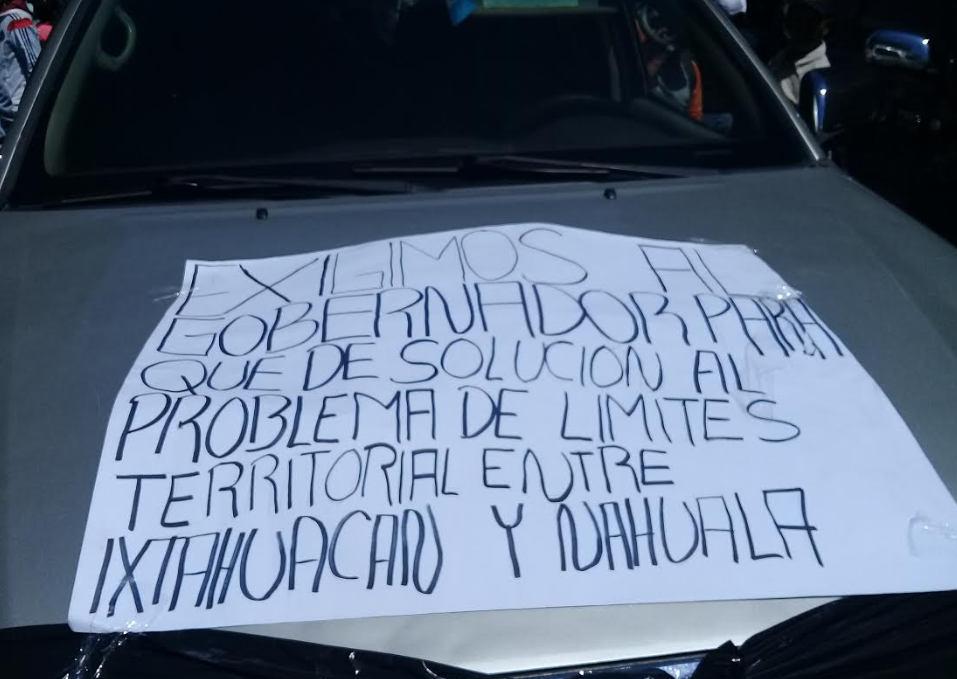 EXIGIMOS AL
GOBERNADOR PARA
QUE DE SOLUCION AL
PROBLEMA DE LIMITES
TERRITORIAL ENTRE
IXTAHUACAN Y NAHUALA